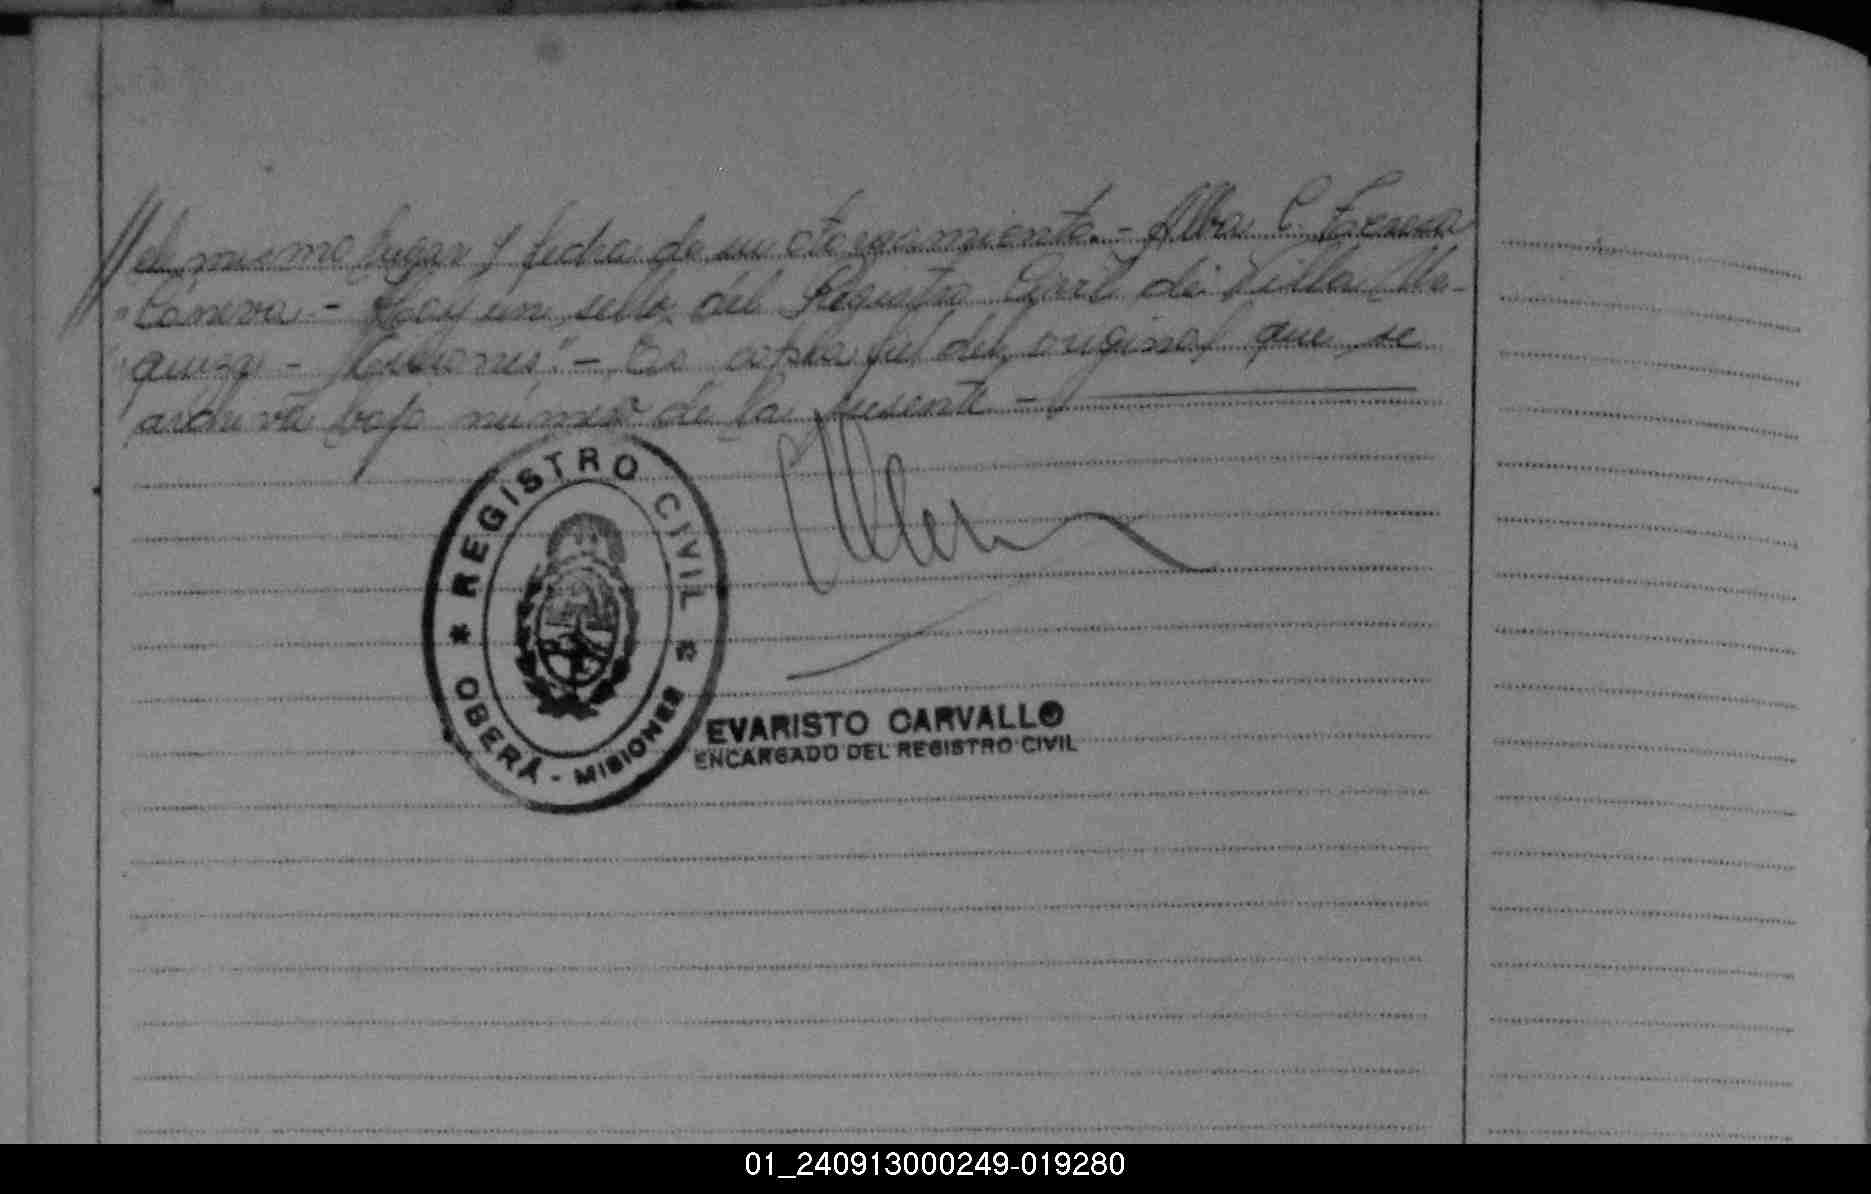 // el mismo lugar y fecha de su otorgamiento. - Alba C.
Cánova. - Hay un sello del Registro Civil de Villa
- Misiones". - Es copia fiel del original que se
archiva bajo número de la presente. -
REGISTRO CIVIL
OBERÁ - MISIONES
EVARISTO CARVALLO
ENCARGADO DEL REGISTRO CIVIL
01_240913000249-019280